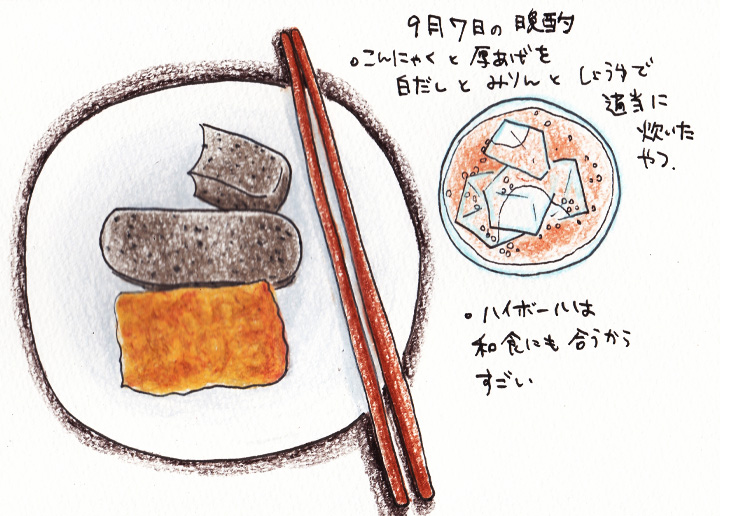 9月7日の 晩酌
•こんにゃくと 厚あげを
白だしと みりんと しょうゆで
適当に
炊いた
やつ.
• ハイボールは
和食にも 合うから
すごい